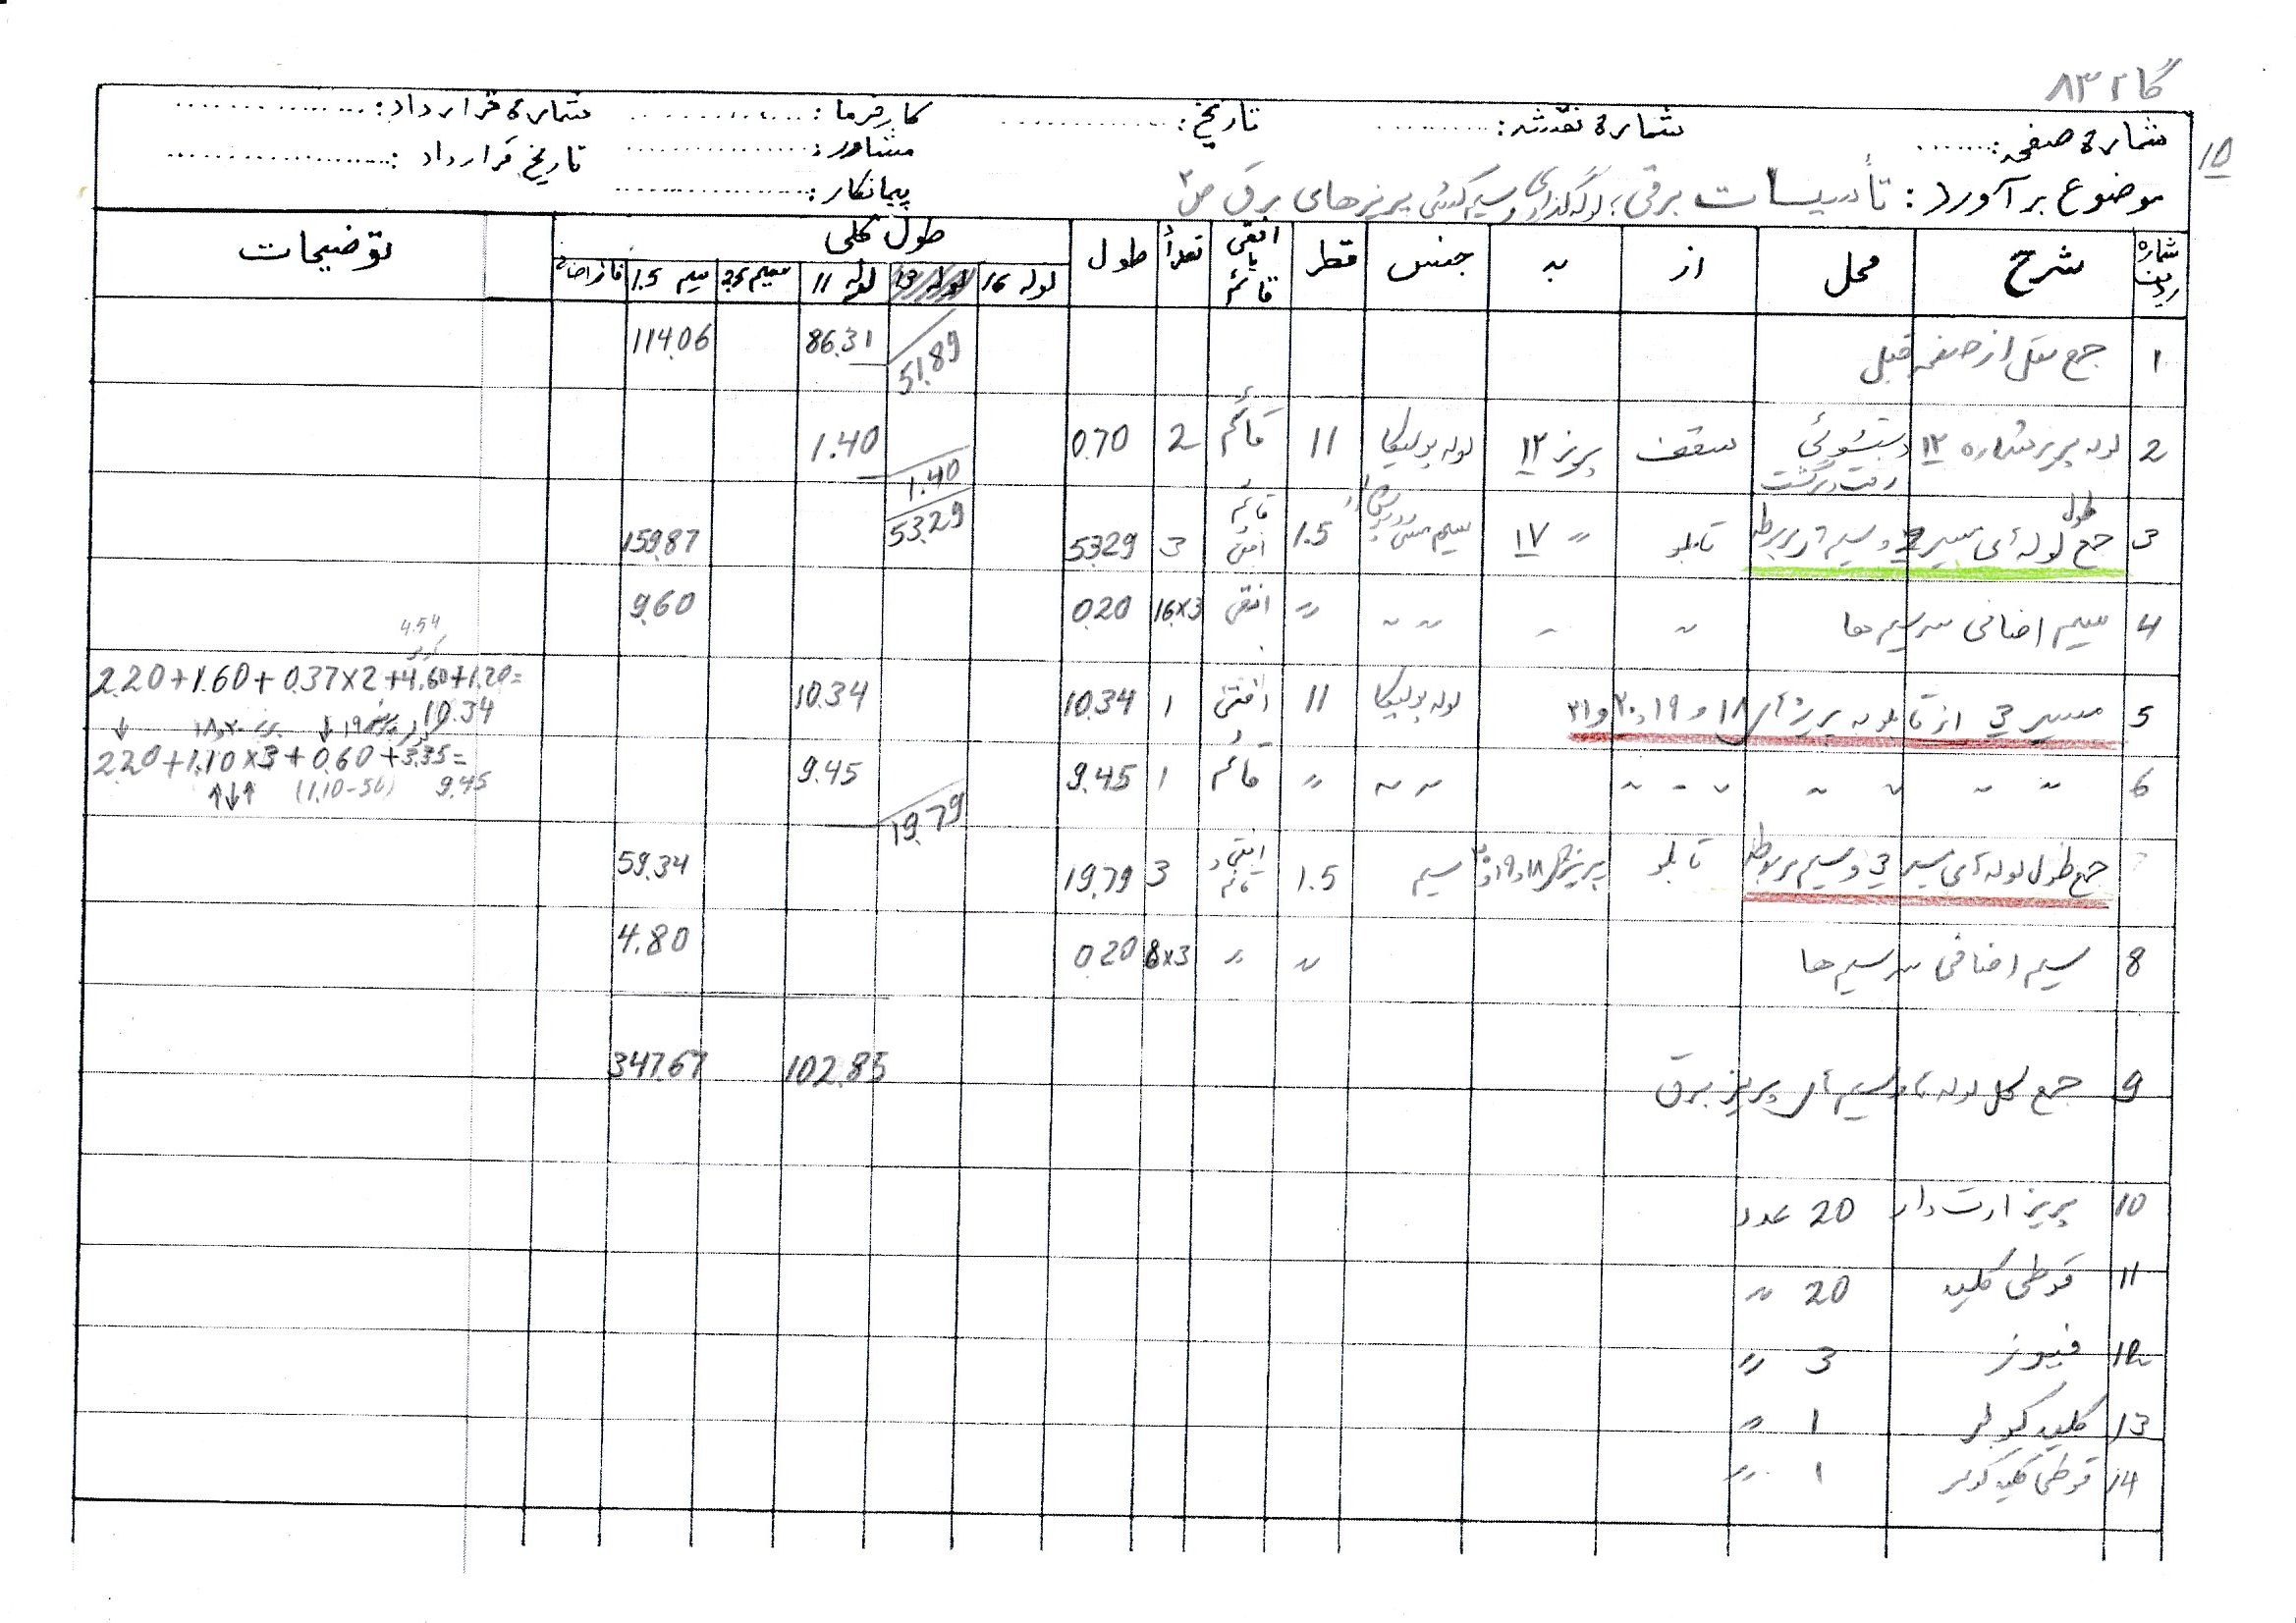 شماره صفحه: ....... شماره نقشه: .......... تاریخ: .............. کارفرما: .............. شماره قرارداد: ..............
مشاور: .............. تاریخ قرارداد: ..............
موضوع برآورد: تأسیسات برقی؛ لوله‌گذاری و سیم‌کشی پریزهای برق
پیمانکار: ..............
۱۵
شماره ردیف شرح محل از به جنس قطر افقی یا قائم تعداد طول طول کلی توضیحات
لوله 16 لوله 13 لوله 11 سیم 2.5 سیم 1.5
1 جمع نقل از صفحه قبل 51.89 86.31 114.06
2 لوله پریز شماره ۱۲ دستشوئی سقف پریز ۱۲ لوله پولیکا 11 قائم 2 0.70 1.40 1.40
رفت و برگشت
3 جمع طول لوله های مسیر 2 و سیم مربوطه تابلو " ۱۷ سیم 1.5 قائم و افقی 3 53.29 53.29 159.87
4 سیم اضافی سر سیم ها " - " " " افقی 16×3 0.20 9.60
5 مسیر 3 از تابلو به پریزهای ۱۸ و ۱۹ و ۲۰ و ۲۱ لوله پولیکا 11 افقی 1 10.34 10.34
4.54
2.20+1.60+0.37×2+4.60+1.20=
10.34
6 " " " " " - " " " " قائم 1 9.45 9.45
19.79
2.20+1.10×3+0.60+3.35=
↑↓↑ (1.10-50) 9.45
جمع طول لوله های مسیر 3 و سیم مربوطه تابلو سیم 1.5 افقی و قائم 3 19.79 59.34
8 سیم اضافی سر سیم ها " " 8×3 0.20 4.80
9 جمع کل لوله ها و سیم های پریز برق 102.85 347.67
10 پریز ارت دار 20 عدد
11 قوطی کلید 20 "
12 فیوز 3 "
13 کلید کولر 1 "
14 قوطی کلید کولر 1 "